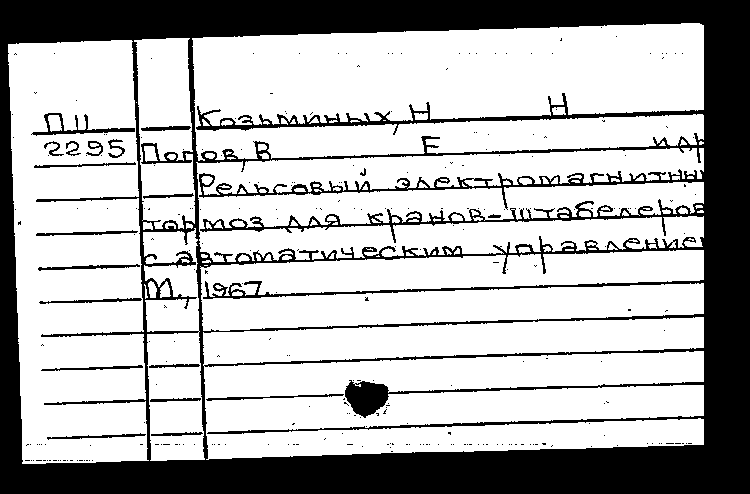 П11 Козьминых, Н Н
2295 Попов, В Е и др
Рельсовый электромагнитны
тормоз для кранов-штабелеров
с автоматическим управление
М., 1967.